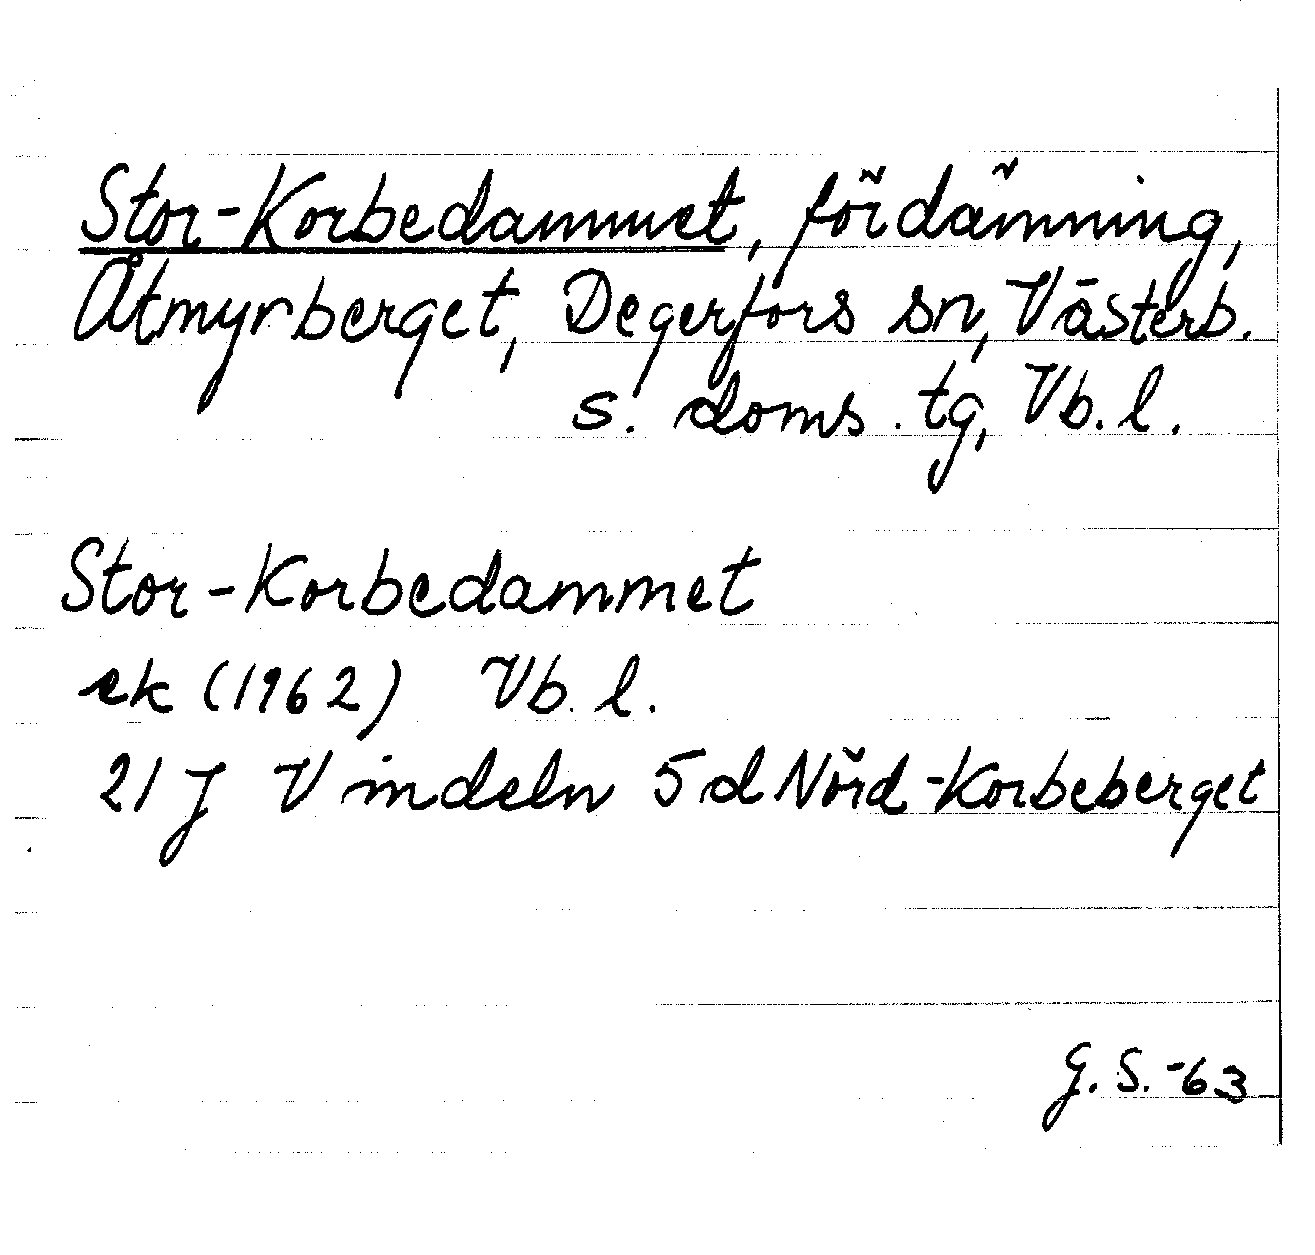 Stor-Korbedammet, fördämning,
Åtmyrberget, Degerfors sn, Västerb.
s. doms. tg, Vb. l.
Stor-Korbedammet
ek (1962) Vb. l.
21 J Vindeln 5d Nörd-Korbeberget
G. S. -63